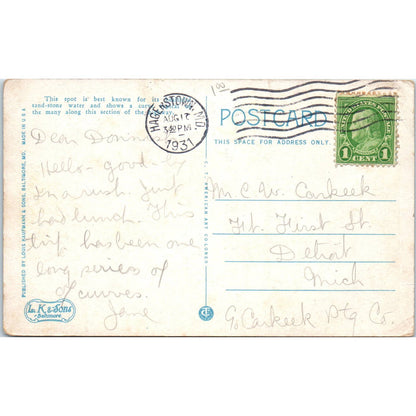 This spot is best known for its
sand-stone water and shows a curve
the many along this section of the
1 00
HAGERSTOWN, MD.
AUG 17
3 30 PM
1931
POSTCARD
THIS SPACE FOR ADDRESS ONLY.
UNITED STATES POSTAGE
1 CENT 1
MADE IN U.S.A.
PUBLISHED BY LOUIS KAUFMANN & SONS, BALTIMORE, MD.
Dear
Hello - good-by
In a rush. Just
had lunch. This
trip has been one
long series of
curves.
Jane
L. K & Sons
Baltimore
C. T. AMERICAN ART COLORED
M. C. W. Carkeek
Ft. First St.
Detroit
Mich
% Carkeek Ptg Co.